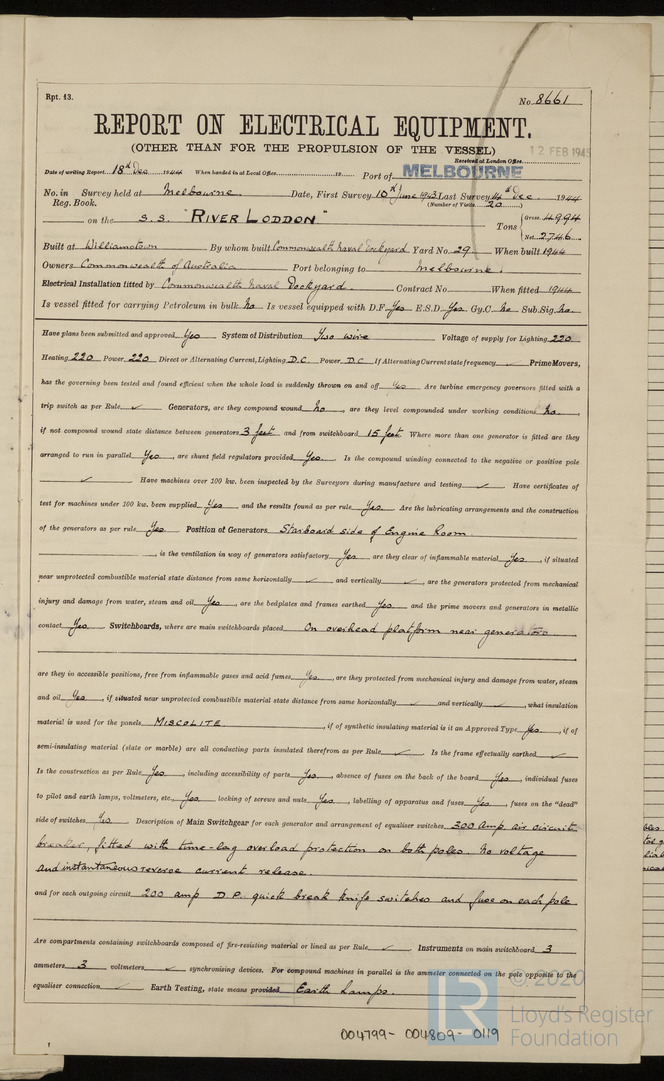 Rpt. 13.
No. 8661
REPORT ON ELECTRICAL EQUIPMENT.
(OTHER THAN FOR THE PROPULSION OF THE VESSEL)
12 FEB 1945
Received at London Office
Date of writing Report 18th Dec 1944 When handed in at Local Office 19 Port of MELBOURNE
No. in Survey held at Melbourne Date, First Survey 10th June 1943 Last Survey 14th Dec. 1944
Reg. Book. (Number of Visits 20)
on the S.S. "RIVER LODDON" Tons { Gross 4994
Net 2746
Built at Williamstown By whom built Commonwealth Naval Dockyard Yard No. 29 When built 1944
Owners Commonwealth of Australia Port belonging to Melbourne.
Electrical Installation fitted by Commonwealth Naval Dockyard. Contract No. When fitted 1944
Is vessel fitted for carrying Petroleum in bulk No. Is vessel equipped with D.F. Yes E.S.D. Yes Gy.C. No Sub.Sig. No.
Have plans been submitted and approved Yes System of Distribution Two wire Voltage of supply for Lighting 220
Heating 220 Power 220 Direct or Alternating Current, Lighting D.C. Power D.C If Alternating Current state frequency ✓ Prime Movers,
has the governing been tested and found efficient when the whole load is suddenly thrown on and off Yes Are turbine emergency governors fitted with a
trip switch as per Rule ✓ Generators, are they compound wound No, are they level compounded under working conditions No,
if not compound wound state distance between generators 3 feet and from switchboard 15 feet Where more than one generator is fitted are they
arranged to run in parallel Yes, are shunt field regulators provided Yes. Is the compound winding connected to the negative or positive pole
✓ Have machines over 100 kw. been inspected by the Surveyors during manufacture and testing ✓ Have certificates of
test for machines under 100 kw. been supplied Yes and the results found as per rule Yes Are the lubricating arrangements and the construction
of the generators as per rule Yes Position of Generators Starboard side of Engine Room.
, is the ventilation in way of generators satisfactory Yes are they clear of inflammable material Yes, if situated
near unprotected combustible material state distance from same horizontally ✓ and vertically ✓, are the generators protected from mechanical
injury and damage from water, steam and oil Yes, are the bedplates and frames earthed Yes and the prime movers and generators in metallic
contact Yes Switchboards, where are main switchboards placed On overhead platform near generators
are they in accessible positions, free from inflammable gases and acid fumes Yes, are they protected from mechanical injury and damage from water, steam
and oil Yes, if situated near unprotected combustible material state distance from same horizontally ✓ and vertically ✓, what insulation
material is used for the panels MISCOLITE, if of synthetic insulating material is it an Approved Type Yes, if of
semi-insulating material (slate or marble) are all conducting parts insulated therefrom as per Rule ✓ Is the frame effectually earthed ✓
Is the construction as per Rule Yes, including accessibility of parts Yes, absence of fuses on the back of the board Yes, individual fuses
to pilot and earth lamps, voltmeters, etc. Yes locking of screws and nuts Yes, labelling of apparatus and fuses Yes, fuses on the "dead"
side of switches Yes Description of Main Switchgear for each generator and arrangement of equaliser switches 300 Amp air circuit
breaker, fitted with time-lag overload protection on both poles. No voltage
and instantaneous reverse current release.
and for each outgoing circuit 200 amp D.P. quick break knife switches and fuse on each pole
Are compartments containing switchboards composed of fire-resisting material or lined as per Rule ✓ Instruments on main switchboard 3
ammeters 3 voltmeters ✓ synchronising devices. For compound machines in parallel is the ammeter connected on the pole opposite to the
equaliser connection ✓ Earth Testing, state means provided Earth Lamps.
© 2020
LR
Lloyd's Register
Foundation
004799- 004809- 0119